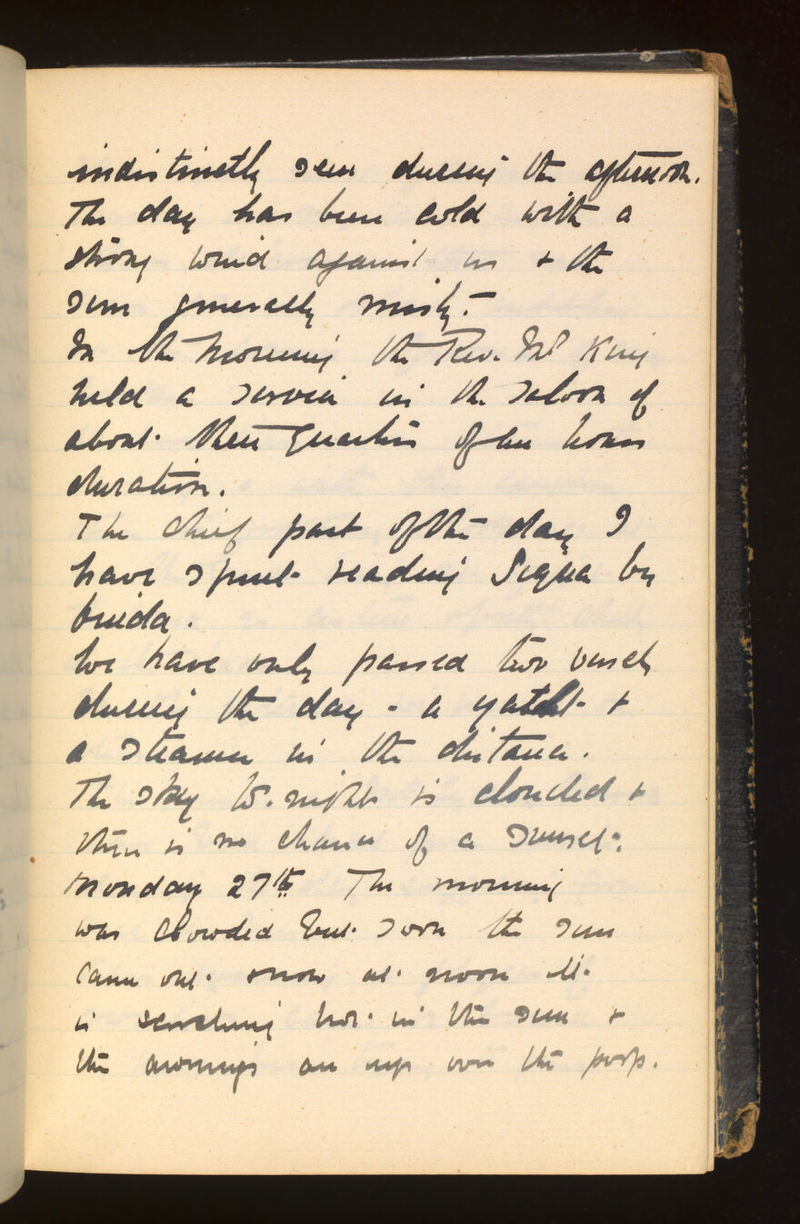 indistinctly seen during the afternoon.
The day has been cold with a
strong wind against us & the
sun generally misty.
In the morning the Rev. Mr King
held a service in the saloon of
about three quarters of an hours
duration.
The chief part of the day I
have spent reading by
We have only passed two vessels
during the day - a yatcht &
a steamer in the distance.
The sky to-night is clouded &
there is no chance of a sunset.
Monday 27th The morning
was clowded but soon the sun
came out. & now at noon it
is scorching hot in the sun &
the awnings are up over the poop.